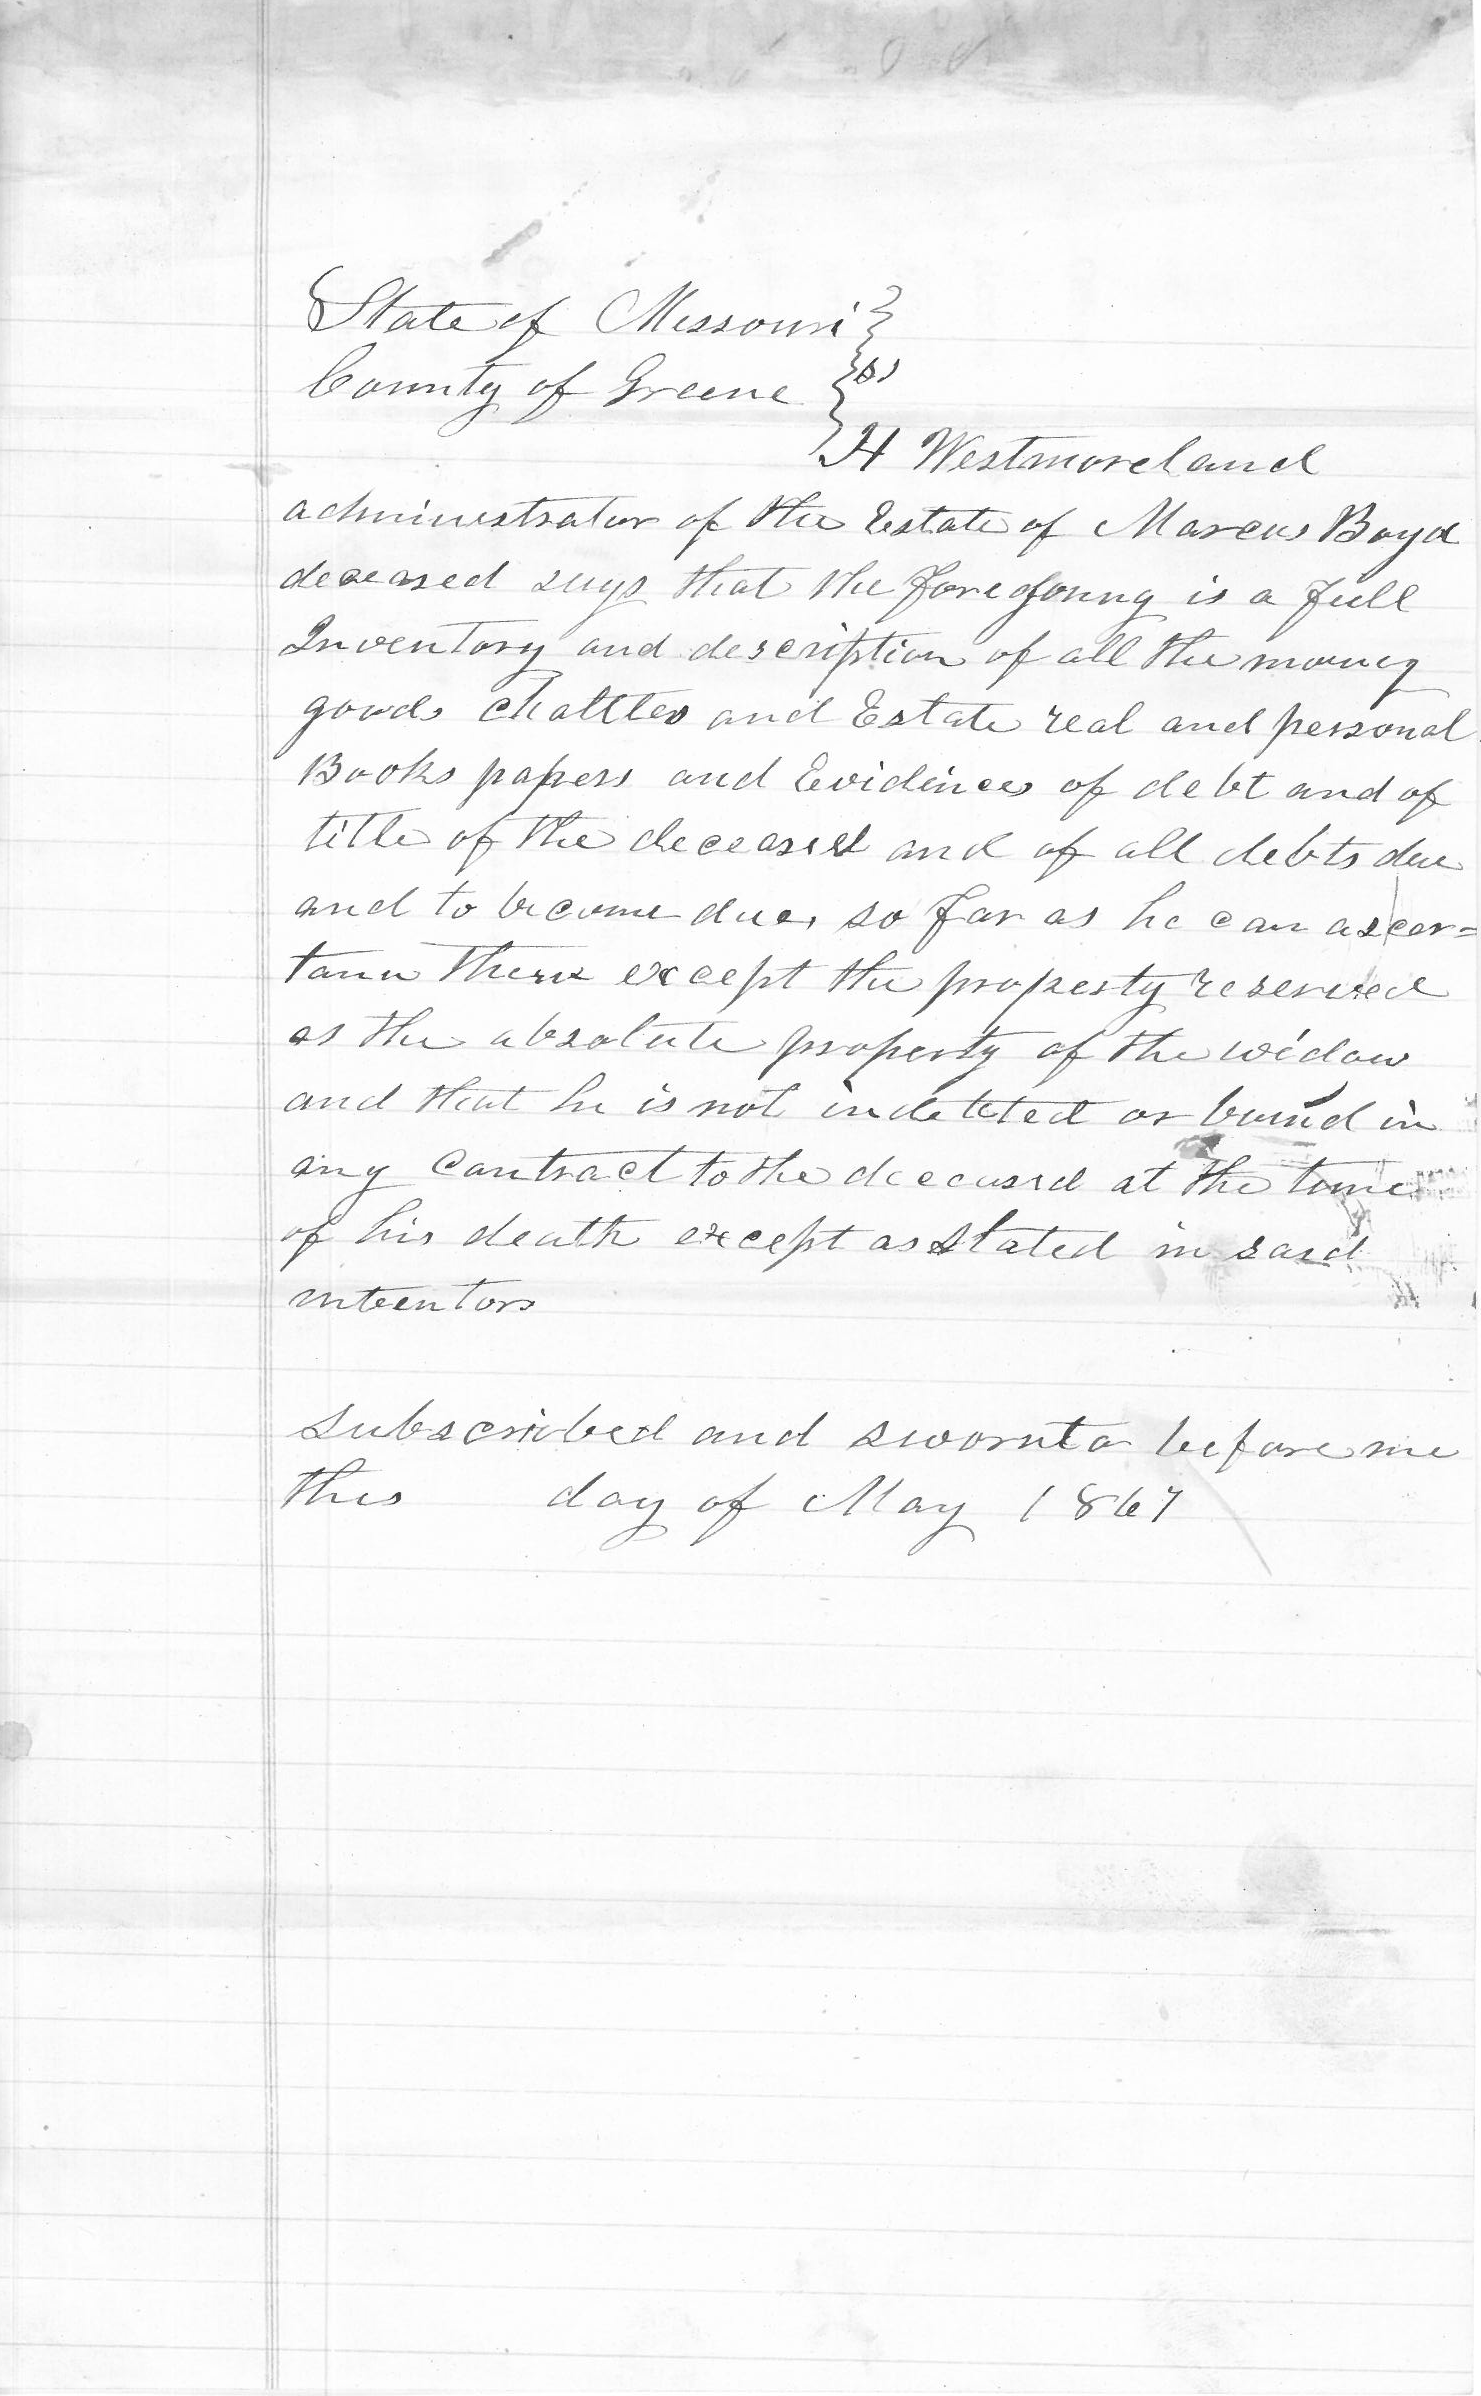 State of Missouri }
County of Greene } ss
H Westmoreland
administrator of the Estate of Marcus Boyd
deceased says that the foregoing is a full
Inventory and description of all the money
goods chattles and Estate real and personal
Books papers and Evidences of debt and of
title of the deceased and of all debts due
and to become due, so far as he can ascer=
tain them except the property reserved
as the absolute property of the widow
and that he is not indebted or bound in
any contract to the deceased at the time
of his death except as stated in said
subscribed and sworn to before me
this day of May 1867